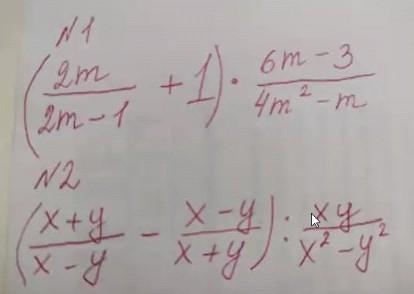 N1
(2m/(2m-1) + 1) · (6m-3)/(4m²-m)
N2
((x+y)/(x-y) - (x-y)/(x+y)) : xy/(x²-y²)